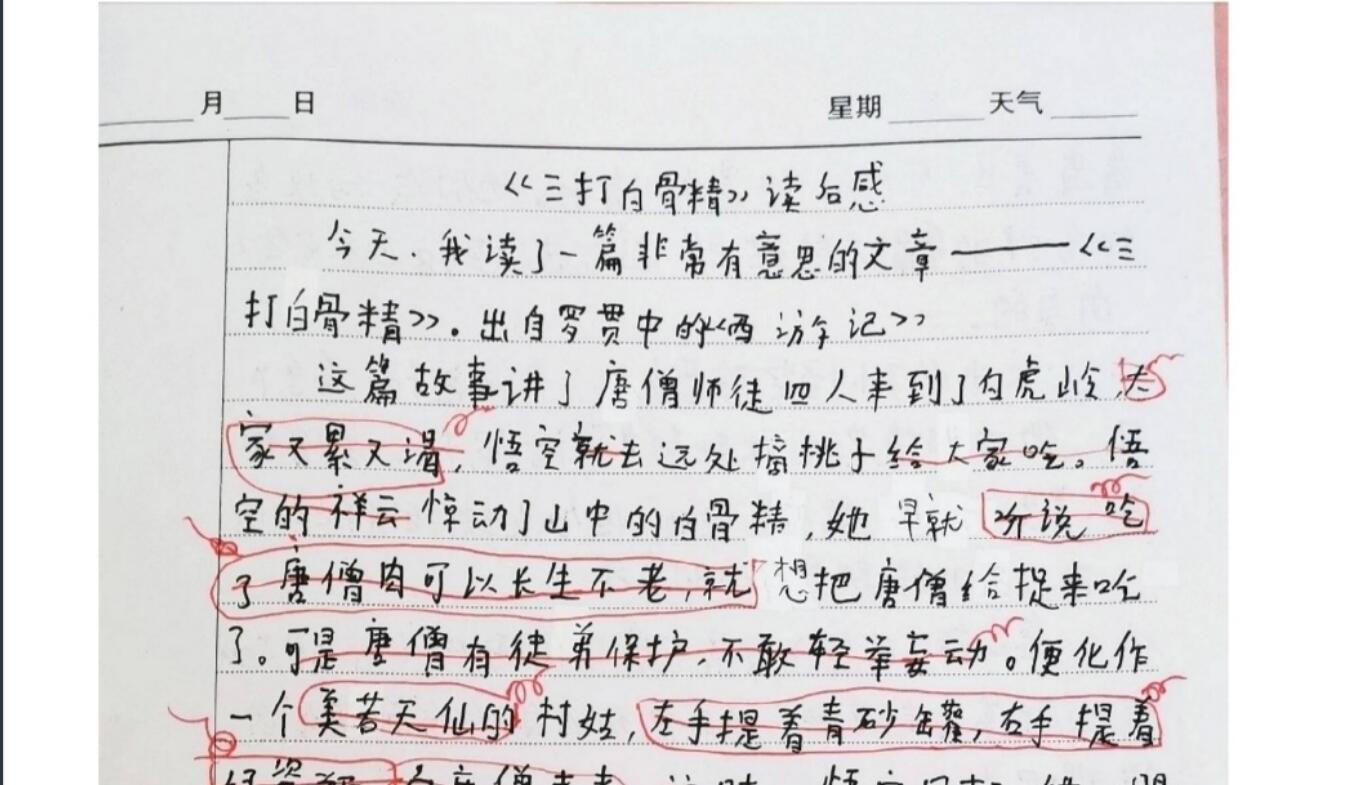 月 日 星期 天气
《三打白骨精》读后感
今天.我读了一篇非常有意思的文章——《三
打白骨精》。出自罗贯中的《西游记》
这篇故事讲了唐僧师徒四人来到了白虎岭,大
家又累又渴,悟空就去远处摘桃子给大家吃。悟
空的祥云惊动了山中的白骨精,她早就听说吃
了唐僧肉可以长生不老,就想把唐僧给捉来吃
了。可是唐僧有徒弟保护.不敢轻举妄动。便化作
一个美若天仙的村姑,左手提着青砂罐,右手提着